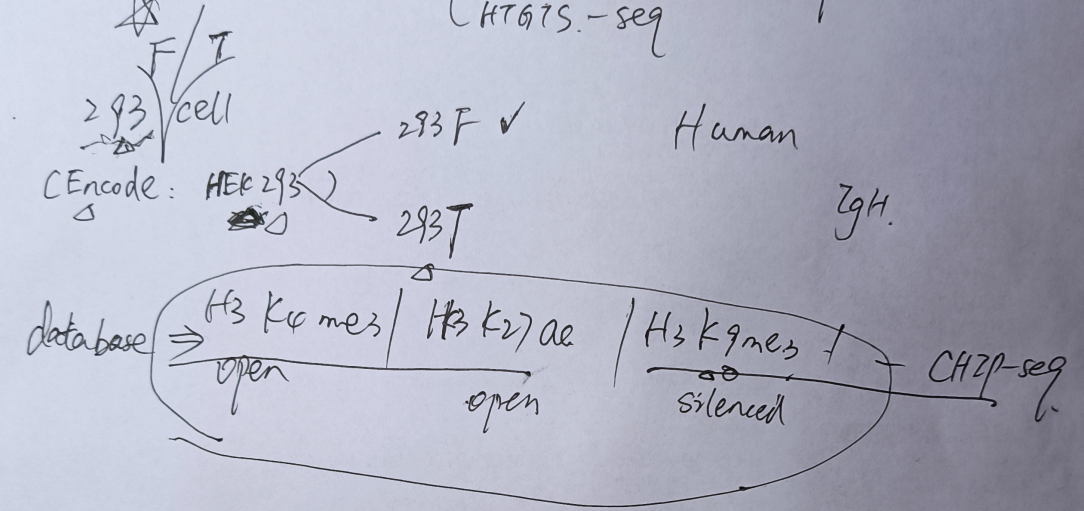 (HTGTS.-seq
F/T
293 cell
293F ✓
Human
CEncode: HEK293
293T
IgH.
database ⇒ H3K4me3 | H3K27ac | H3K9me3
CHIP-seq.
open
open
silenced